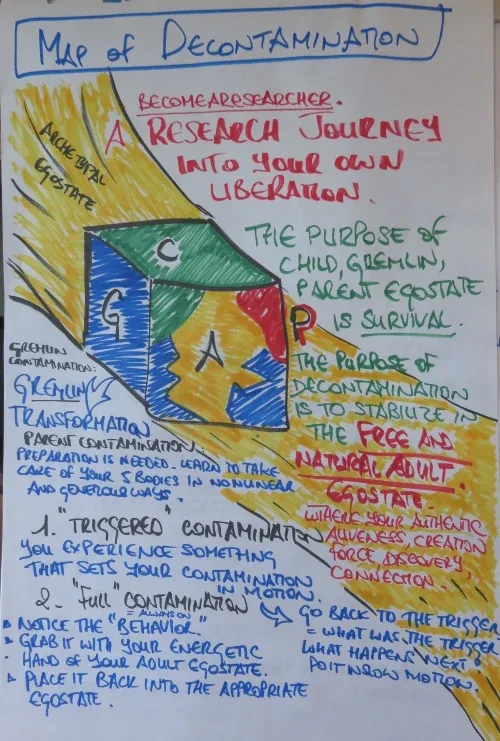 MAP of DECONTAMINATION
BECOMEARESEARCHER.
A RESEARCH JOURNEY
INTO YOUR OWN
LIBERATION.
ARCHETYPAL
EGOSTATE
C
G
A
P
THE PURPOSE OF
CHILD, GREMLIN,
PARENT EGOSTATE
IS SURVIVAL.
THE PURPOSE OF
DECONTAMINATION
IS TO STABILIZE IN
THE FREE AND
NATURAL ADULT
EGOSTATE.
WHERE YOUR AUTHENTIC
ALIVENESS, CREATION
FORCE, DISCOVERY,
CONNECTION.
GREMLIN
CONTAMINATION:
GREMLIN
TRANSFORMATION
PARENT CONTAMINATION:
PREPARATION IS NEEDED. LEARN TO TAKE
CARE OF YOUR 5 BODIES IN NONLINEAR
AND GENEROUR WAYS.
1. "TRIGGERED" CONTAMINATION
YOU EXPERIENCE SOMETHING
THAT SETS YOUR CONTAMINATION
IN MOTION.
2- "FULL" CONTAMINATION
= ALWAYS ON
NOTICE THE "BEHAVIOR."
GRAB IT WITH YOUR ENERGETIC
HAND OF YOUR ADULT EGOSTATE.
PLACE IT BACK INTO THE APPROPRIATE
EGOSTATE.
GO BACK TO THE TRIGGER
= WHAT WAS THE TRIGGER
WHAT HAPPENS NEXT?
DO IT IN SLOW MOTION.